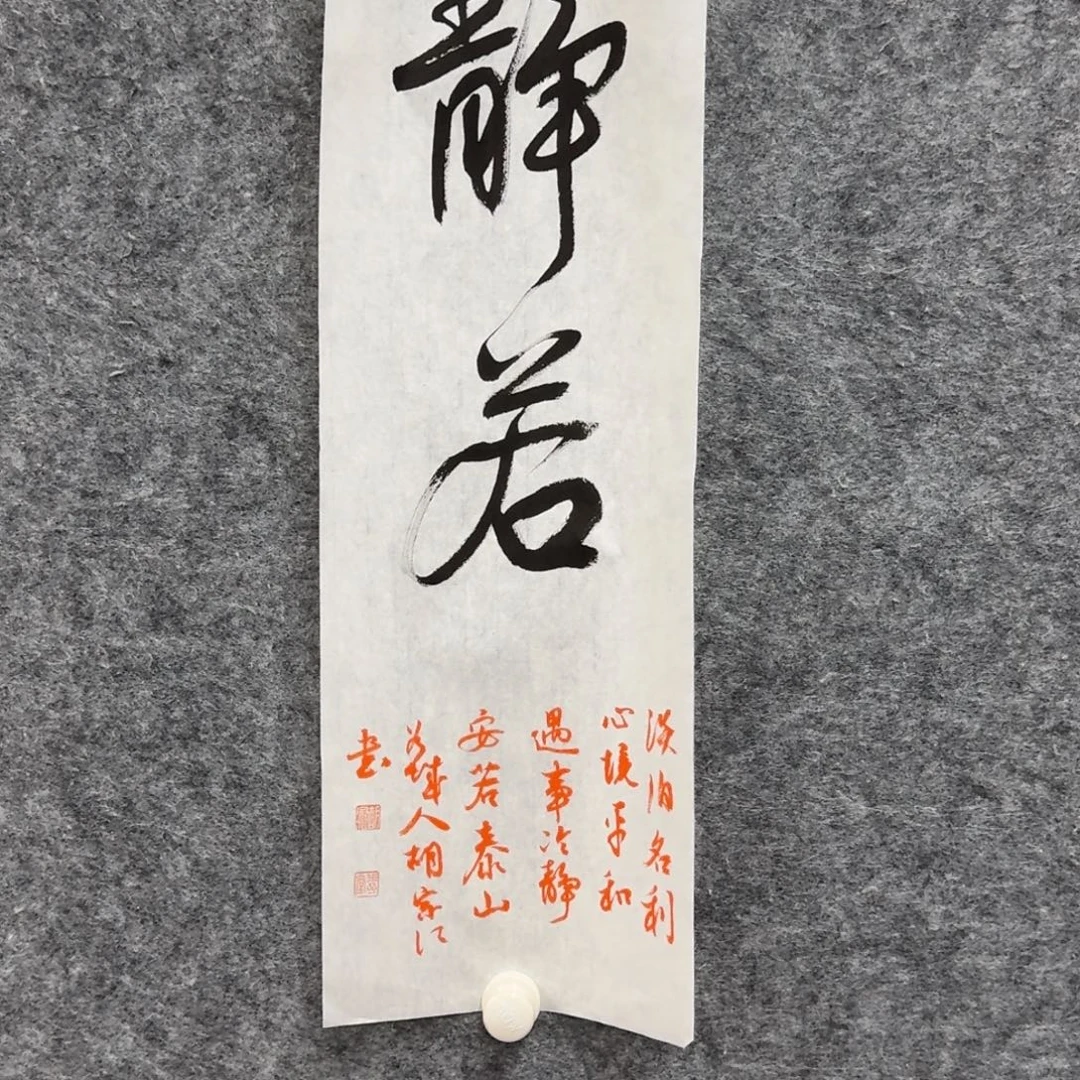 静若
淡泊名利
心境平和
遇事冷静
安若泰山
人相家江
书